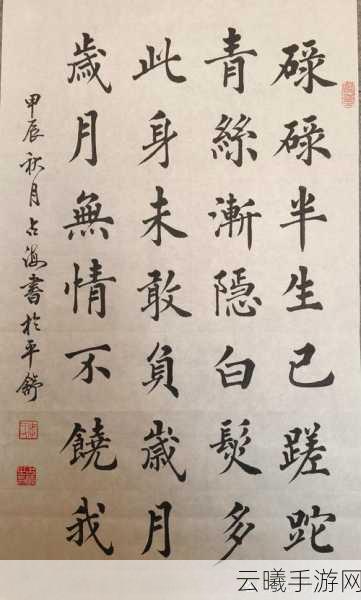 碌碌半生已蹉跎
青絲漸隱白髮多
此身未敢負歲月
歲月無情不饒我
甲辰秋月占海書於平舒
云曦手游网